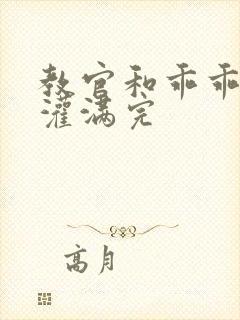 教官和乖乖
灌满完
高月